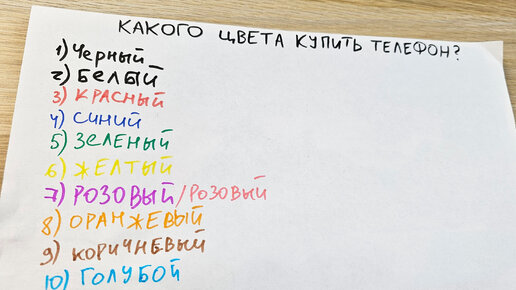 КАКОГО ЦВЕТА КУПИТЬ ТЕЛЕФОН?
1) Черный
2) БЕЛЫЙ
3) КРАСНЫЙ
4) СИНИЙ
5) ЗЕЛЕНЫЙ
6) ЖЕЛТЫЙ
7) РОЗОВЫЙ/РОЗОВЫЙ
8) ОРАНЖЕВЫЙ
9) КОРИЧНЕВЫЙ
10) ГОЛУБОЙ